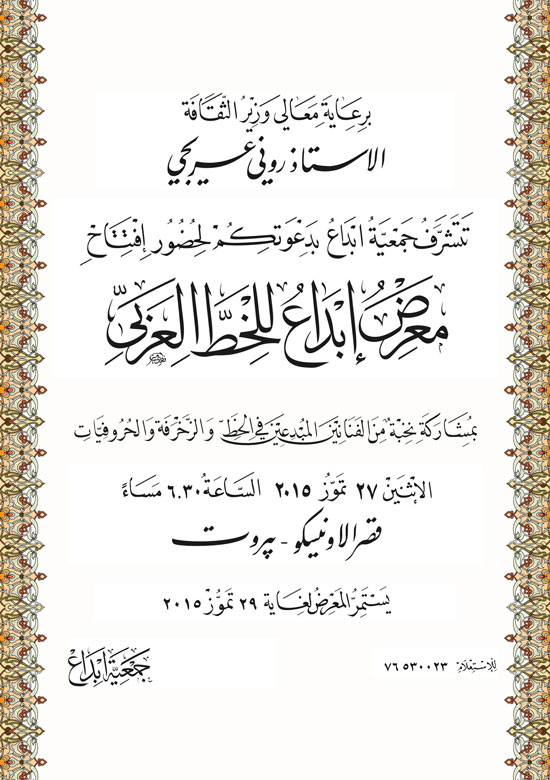 برِعَايَة مَعَالي وَزيْرُ الثّقَافَة
الاستاذ روني عريجي
تَتَشرَّفُ جَمْعيَّةُ ابْدَاعُ بدَعْوَتكِمُ لحُضُور إفْتِتَاحْ
معرِضُ إبْدَاعُ للخطِّ العَرَبيّ
بمُشَاركَة نخبَةٌ مِنَ الفَنانيْنَ المُبْدعيْنَ في الخطّ وَالزَّخْرفَة وَالحُروفيَّات
الاثنيْنَ ٢٧ تمّوُزُ ٢٠١٥ السَّاعَةُ ٦.٣٠ مَسَاءً
قصر الاونيسكو - بيروت
يَسْتَمرُّ المَعْرِضُ لغَاية ٢٩ تَمُّوْزُ ٢٠١٥
للإسْتعْلَام: ٧٦ ٥٣٠٠٢٣
جَمْعيَّة ابْدَاعْ